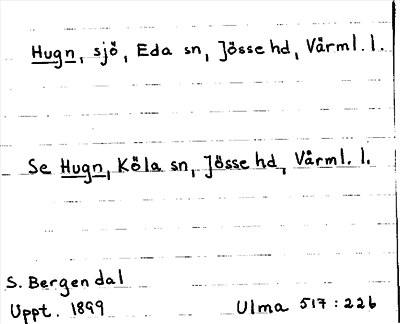 Hugn, sjö, Eda sn, Jösse hd, Värml. l.
Se Hugn, Köla sn, Jösse hd, Värml. l.
S. Bergendal
Uppt. 1899
Ulma 517:226